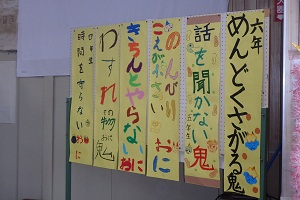 六年
めんどくさがる鬼
五年生
話を聞かない鬼
のんびりおに
こえがちいさいおに
きちんとやらないおに
わすれ物おに
時間を守らないおに